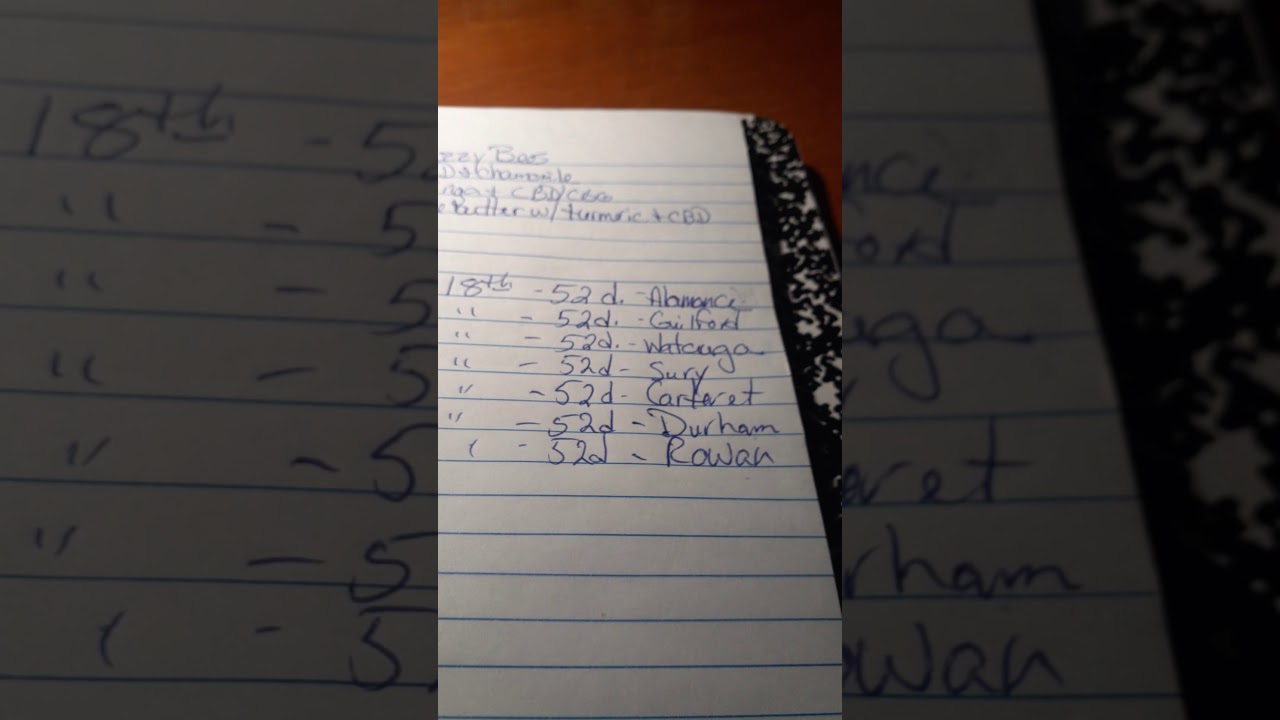 zzy Bees
D & Chamomile
nga + CBD/CBG
e Butter w/ turmeric + CBD
18th - 52 d. - Alamance
" - 52d. - Guilford
" - 52d. - Watauga
" - 52d - Surry
" - 52d - Carteret
" - 52d - Durham
" - 52d - Rowan